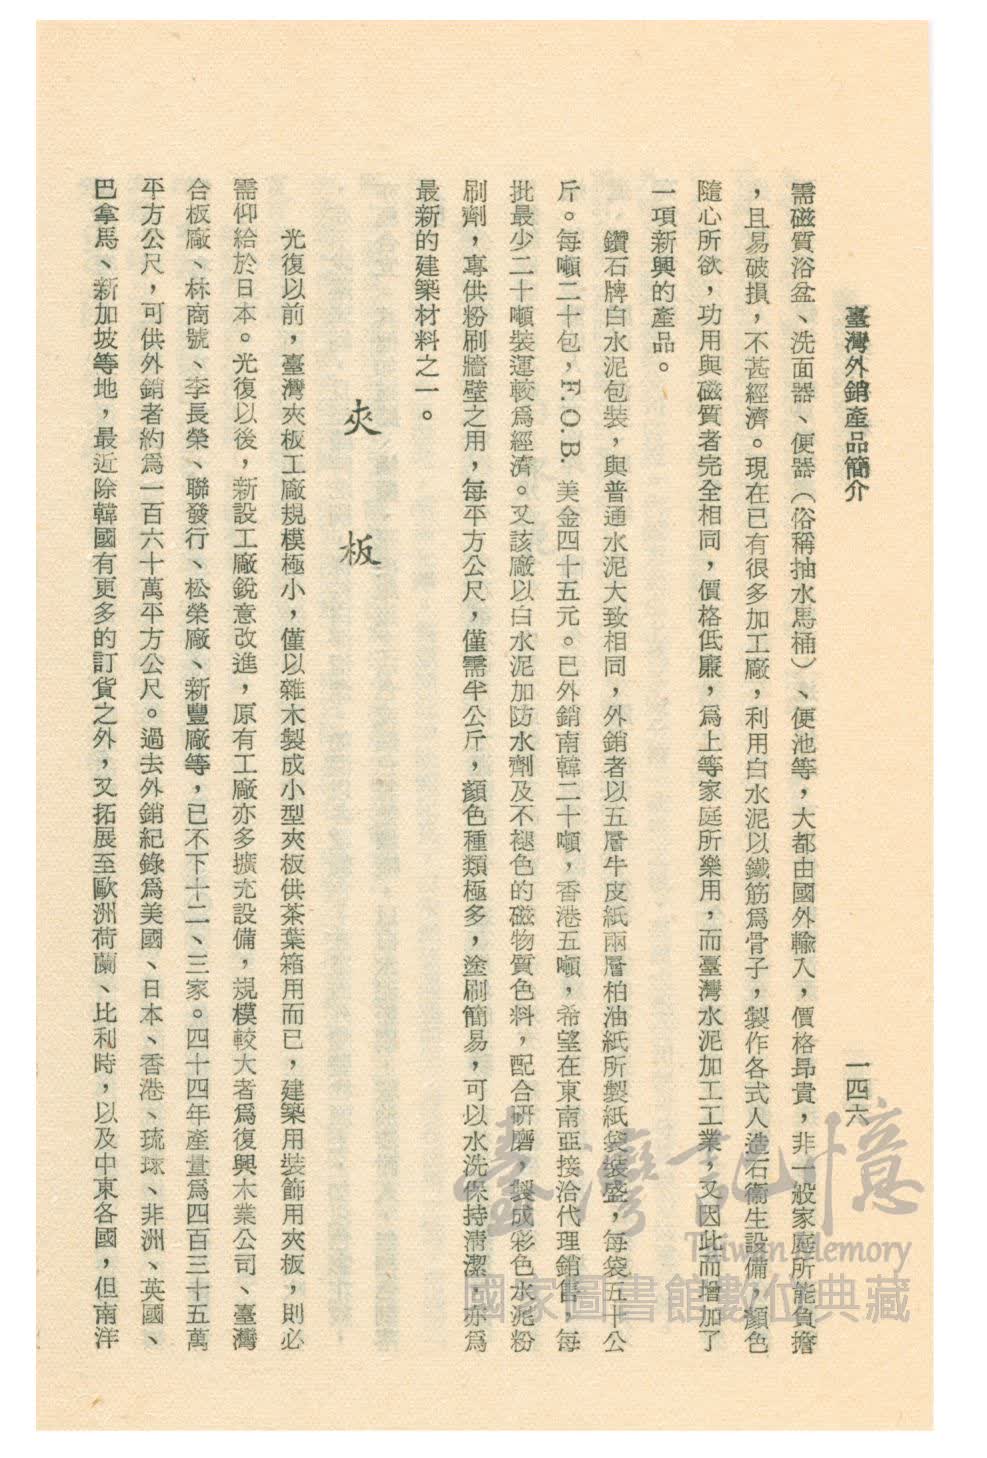 臺灣外銷產品簡介
一四六
需磁質浴盆、洗面器、便器（俗稱抽水馬桶）、便池等，大都由國外輸入，價格昂貴，非一般家庭所能負擔
，且易破損，不甚經濟。現在已有很多加工廠，利用白水泥以鐵筋爲骨子，製作各式人造石衞生設備，顏色
隨心所欲，功用與磁質者完全相同，價格低廉，爲上等家庭所樂用，而臺灣水泥加工工業，又因此而增加了
一項新興的產品。
鑽石牌白水泥包裝，與普通水泥大致相同，外銷者以五層牛皮紙兩層柏油紙所製紙袋裝盛，每袋五十公
斤。每噸二十包，F.O.B. 美金四十五元。已外銷南韓二十噸，香港五噸，希望在東南亞接洽代理銷售，每
批最少二十噸裝運較爲經濟。又該廠以白水泥加防水劑及不褪色的磁物質色料，配合研磨，製成彩色水泥粉
刷劑，專供粉刷牆壁之用，每平方公尺，僅需半公斤，顏色種類極多，塗刷簡易，可以水洗保持清潔，亦爲
最新的建築材料之一。
夾板
光復以前，臺灣夾板工廠規模極小，僅以雜木製成小型夾板供茶葉箱用而已，建築用裝飾用夾板，則必
需仰給於日本。光復以後，新設工廠銳意改進，原有工廠亦多擴充設備，規模較大者爲復興木業公司、臺灣
合板廠、林商號、李長榮、聯發行、松榮廠、新豐廠等，已不下十二、三家。四十四年產量爲四百三十五萬
平方公尺，可供外銷者約爲一百六十萬平方公尺。過去外銷紀錄爲美國、日本、香港、琉球、非洲、英國、
巴拿馬、新加坡等地，最近除韓國有更多的訂貨之外，又拓展至歐洲荷蘭、比利時，以及中東各國，但南洋
臺灣記憶
Taiwan Memory
國家圖書館數位典藏